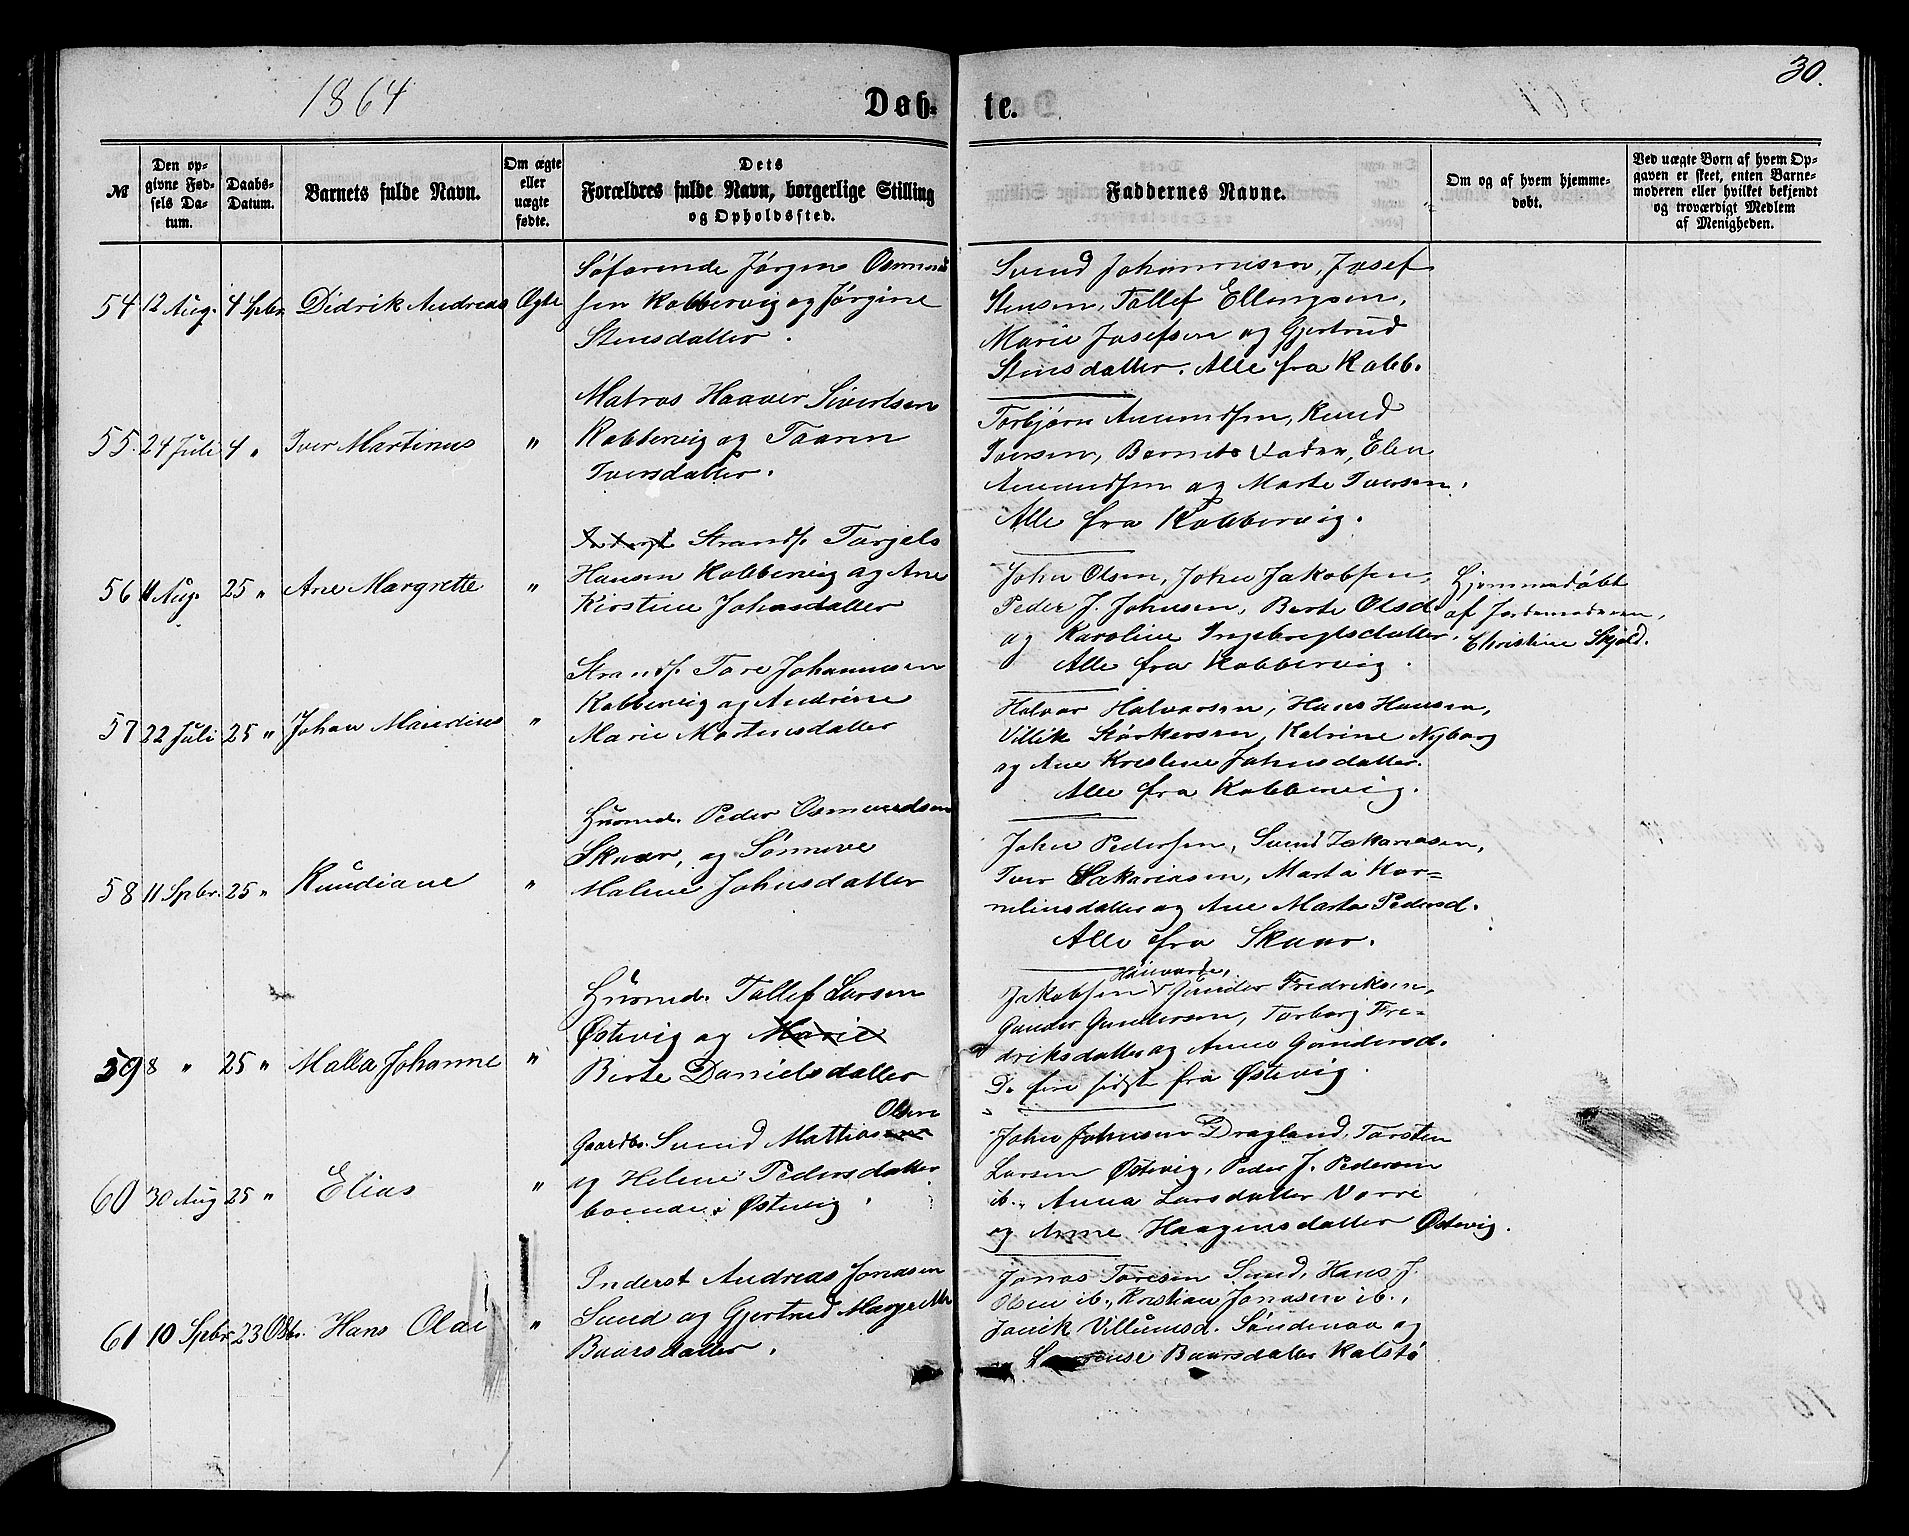 1864
Døbte.
30.
№
Den opgivne Fødsels Datum.
Daabs-Datum.
Barnets fulde Navn.
Om ægte eller uægte fødte.
Dets Forældres fulde Navn, borgerlige Stilling og Opholdssted.
Faddernes Navne.
Om og af hvem hjemmedøbt.
Ved uægte Børn af hvem Opgaven er skeet, enten Barnemoderen eller hvilket bekjendt og troværdigt Medlem af Menigheden.
54 12 Aug. 4 Spbr. Didrik Andreas Ægte
Søfarende Jørgen Osmund
sen Kobbervig og Jørgine
Stensdatter.
Svend Johannesen, Josef
Stensen, Tollef Ellingsen,
Marie Josefsen og Gjertrud
Stensdatter. Alle fra Kobb.
55. 24 Juli 4 " Iver Martinus "
Matros Haaver Sivertsen
Kobbervig og Taaren
Iversdatter.
Torbjørn Amundsen, Knud
Iversen, Barnets Fader, Elen
Amundsen og Marte Iversen.
Alle fra Kobbervig.
56 11 Aug. 25 " Ane Margrette "
Strands. Torjels
Hansen Kobbervig og Ane
Kirstine Johnsdatter
John Olsen, John Jakobsen,
Peder J. Johnsen, Berte Olsd.
og Karoline Ingebregtsdatter.
Alle fra Kobbervig.
Hjemmedøbt
af Jordemoderen,
Christine Skjold.
57 22 Juli 25 " Johan Mandius "
Strands. Tore Johannesen
Kobbervig og Andrine
Marie Martinsdatter
Halvor Halvorsen, Hans Hansen,
Villik Størkersen, Katrine Nyborg
og Ane Kristine Johnsdatter.
Alle fra Kobbervig.
58 11 Spbr. 25 " Knudiane "
Husmd. Peder Osmundsen
Skaar, og Sønneve
Malene Johnsdatter
John Pedersen, Svend Zakariasen,
Iver Sakariasen, Marta Kor=
neliusdatter og Ane Marta Pedersd.
Alle fra Skaar.
59 8 " 25 " Malla Johanne "
Husmd. Tollef Larsen
Østevig og Marie
Berte Danielsdatter
Jakobsen Gunder Fredriksen,
Gunder Gundersen, Torborg Fre=
driksdatter og Anne Gundersd.
De fire sidste fra Østevig.
60 30 Aug 25 " Elias "
Olsen
Gaardbr. Svend Mattiasen
og Helene Pedersdatter
boende i Østevig.
John Johnsen Dragland, Torsten
Larsen Østevig, Peder J. Pedersen
ib., Anna Larsdatter Vorre
og Anne Haagensdatter Østevig.
61 10 Spbr 23 Oktbr. Hans Olai "
Inderst Andreas Jonasen
Sund og Gjertrud Margrette
Baarsdatter.
Jonas Toresen Sund, Hans J.
Olsen ib., Kristian Jonasen ib.,
Janik Villumsd. Søndenaa og
Baarsdatter Kalstø